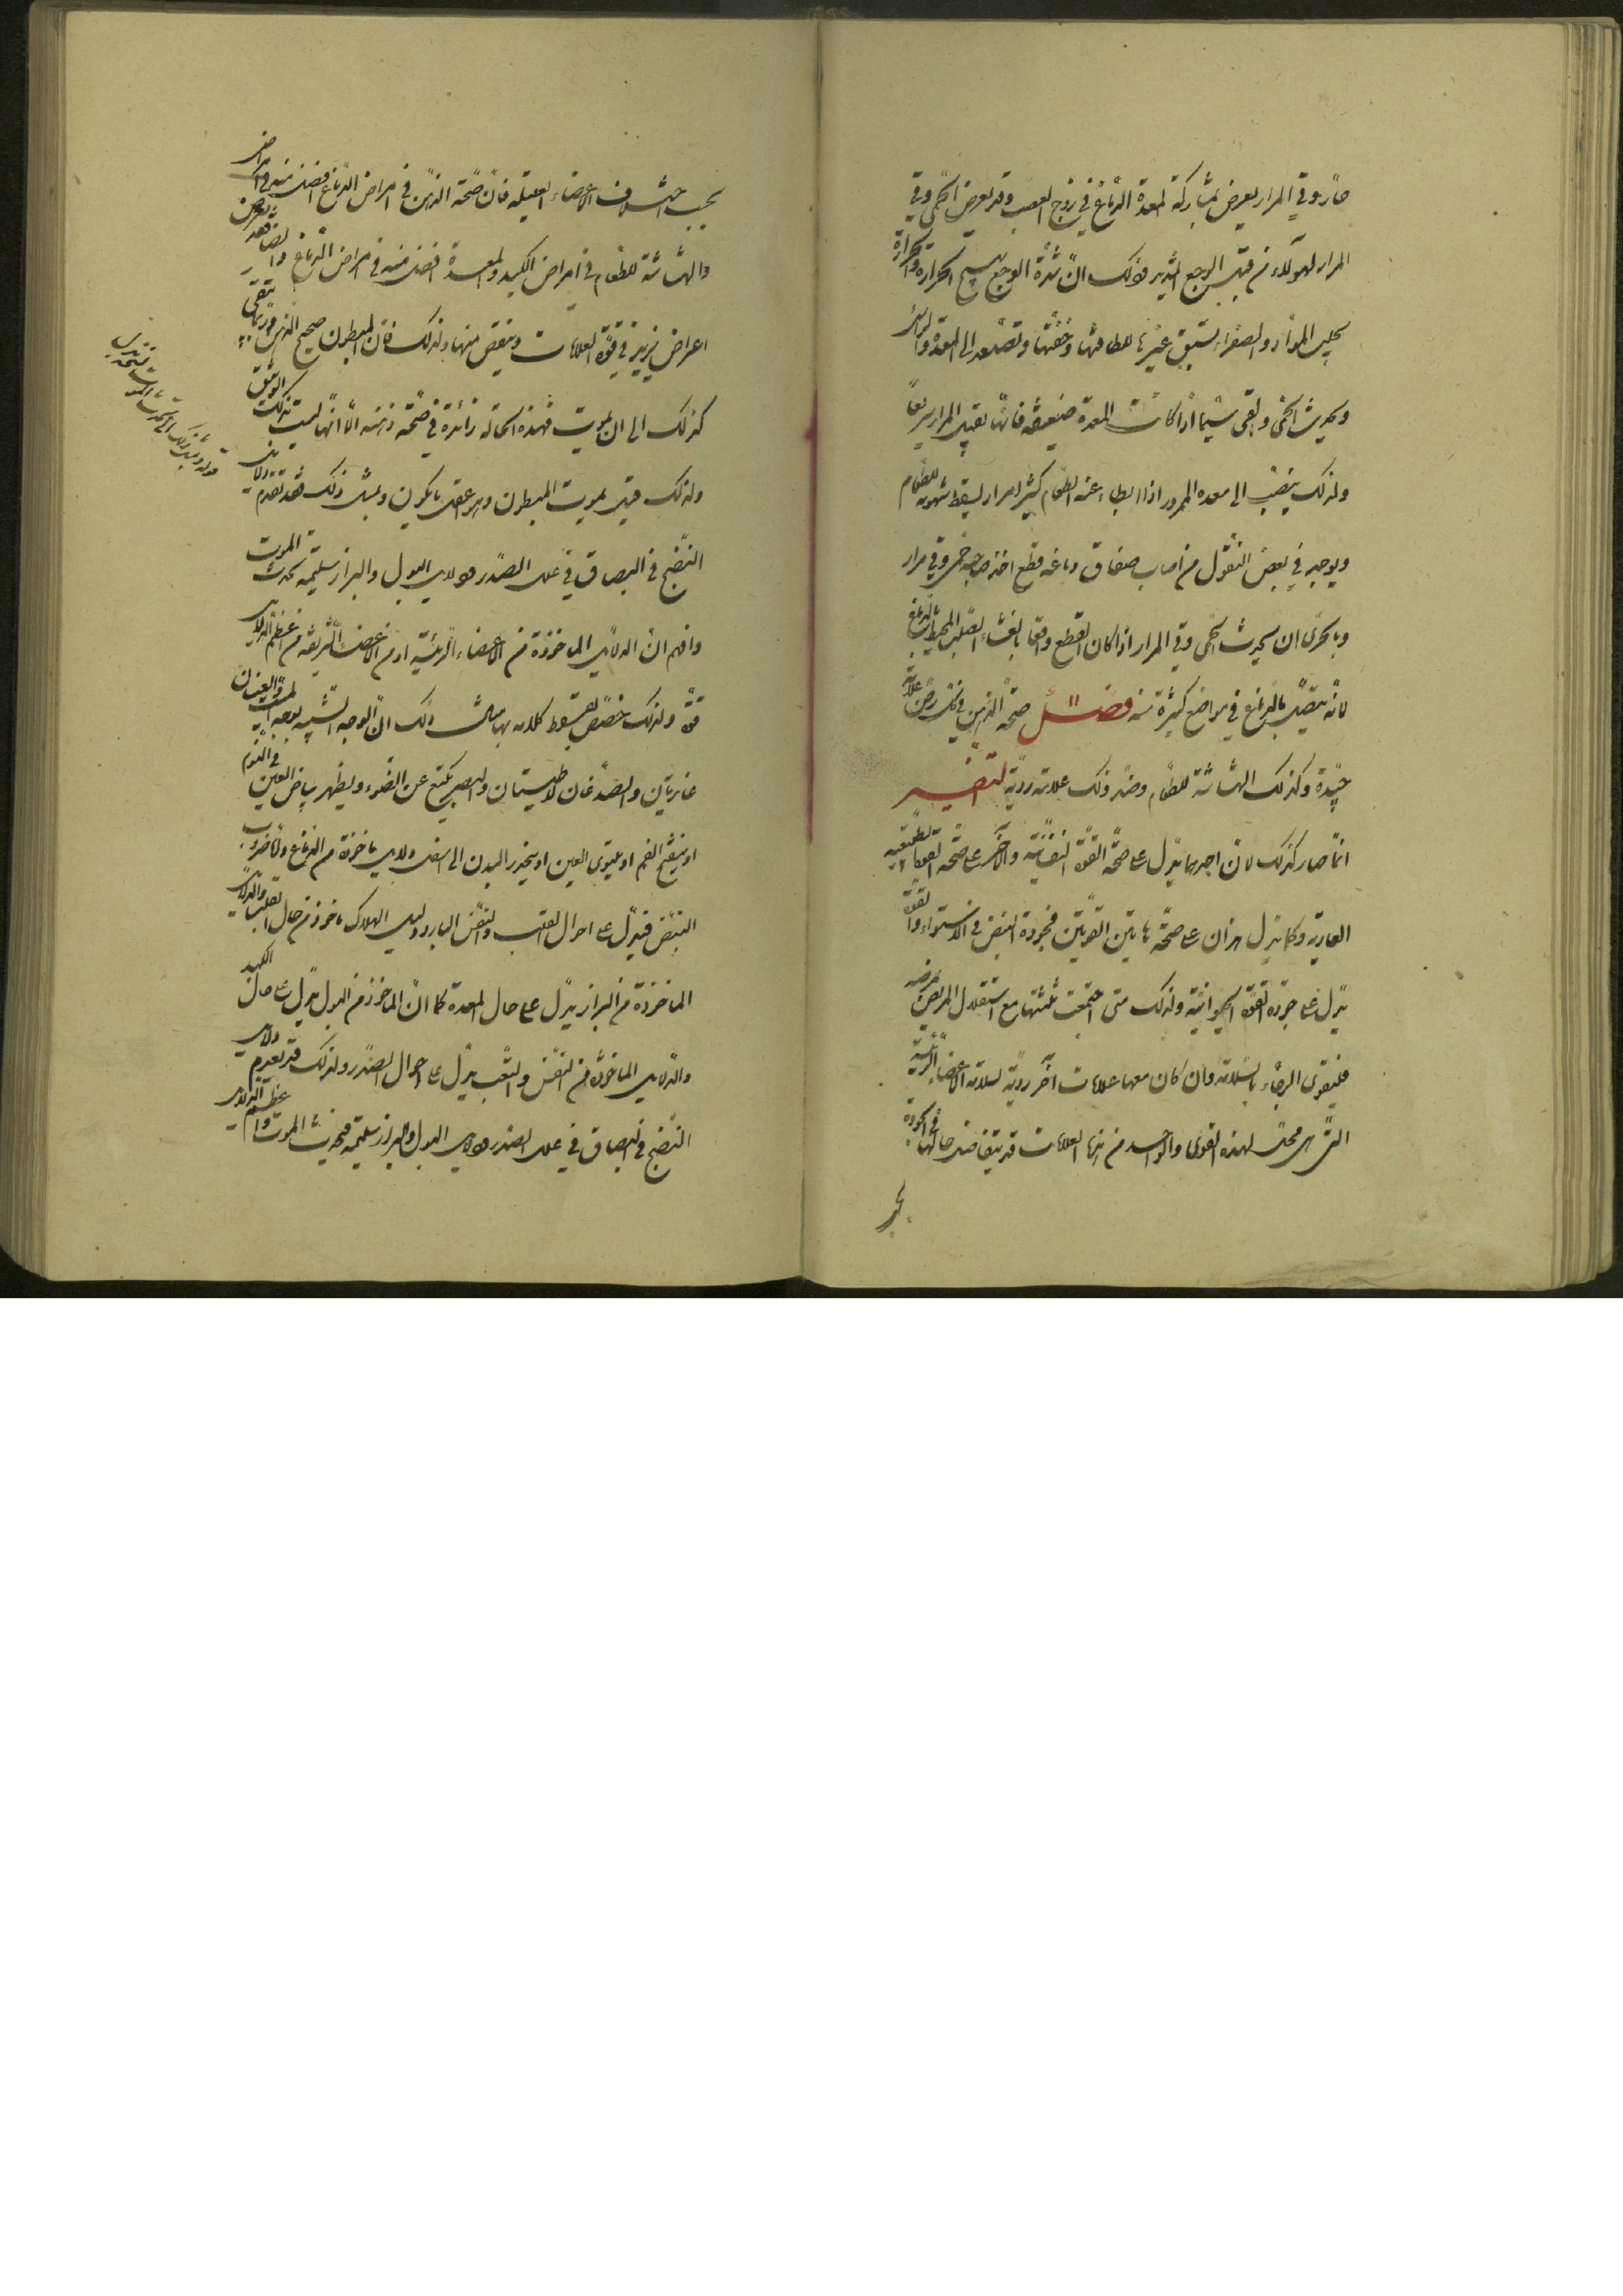 حار وقي المرار يعرض بمشاركة المعدة الدماغ في زوج العصب وقد يعرض الحمى وقي
المرار لهولاء من قبل الوجع الشديد وذلك انّ شدّة الوجع يهيج الحرارة والحرارة
يجلب الموادّ والصفراء يستبق غيرها للطافتها وخفّتها وتصعد الى المعدة والرأس
ويحدث الحمى والقي سيّما اذا كانت المعدة ضعيفة فانّها تقبل المرار سريعاً
ولذلك ينصبّ الى معده الممرور اذا ابطاء عنه الطعام كثير مرار يسقط شهوته للطعام
ويوجد في بعض النقول من اصاب صفاق دماغه قطع اخذ صاحبه حمى وقي مرار
وبالحرى ان يحدث الحمى وقي المرار اذا كان القطع واقعا بالغشاء الصلب المحيط بالدماغ
لانّه يتصل بالدماغ في مواضع كثيرة منه فصل صحة الذهن في كل مرض علامة
جيّدة وكذلك الهشاشة للطعام وضدّ ذلك علامة رديّة التفسير
انّما صار كذلك لانّ احدهما يدّل على صحّة القوة النفسانيّة والاخر على صحّة القوة الطبيعيه
العاديه وكما يدّل هذان على صحّة هاتين القوتين فجودة النبض في الاستواء والقوّة
يدّل على جودة القوّة الحيوانيّة ولذلك متى اجتمعت ثلثتها مع استقلال المريض بمرضه
فليقوى الرجاء بالسلامة وان كان معها علامات اخر رديّة لسلامة الاعضاء الرئيسة
التي هي محلّ لهذه القوى والواحد من هذه العلامات قد يتفاضل حالها في الجودة
بحسب اختلاف الاعضاء العليله فانّ صحّة الذهن في امراض الدماغ افضل منه في امراض
والهشاشة للطعام في امراض الكبد والمعدة افضل منه في امراض الدماغ وايضا قد يعرض
اعراض يزيد في قوّة العلامات وينقص منها ولذلك فانّ المبطون صحيح الذهن وربّما يبقى
كذلك الى ان يموت فهذه الحالة زائدة في صحّة ذهنه الّا انّها ليست بتلك الوثيقة
ولذلك قيل يموت المبطون وهو اعقل ما يكون وبمثل ذلك فقد تقدم دلايل
النضج في البصاق في علل الصدر ودلايل البول والبراز سليمه يحدث الموت
وافهم انّ الدلايل الماخوذة من الاعضاء الرئيسيّة او من الاعضاء الشريفة من اعظم الدلايل
قوّة ولذلك خصّص بقراط كلامه بها مثال ذلك انّ الوجه الشبيه بوجه الميت والعينان
غايرتين والصدغان لاطيتان والبصر يمتنع عن الضوء ويظهر بياض العين في النوم
او ينفتح الفم او يلتوى العين او ينحدر البدن الى اسفل دلايل ماخوذة من الدماغ وامّا ضروب
النبض فيدّل على احوال القلب والنفس البارد دليل الهلاك ماخوذ من حال القلب والدلايل
الماخوذة من البراز يدّل على حال المعدة كما انّ الماخوذ من البول يدّل على حال الكبد
والدلايل الماخوذة من النفس والتعب يدّل على احوال الصدر ولذلك قد يعدم دلايل
النضج في البصاق في علل الصدر ودلايل البول والبراز سليمة فيحدث الموت واعظم الدلايل